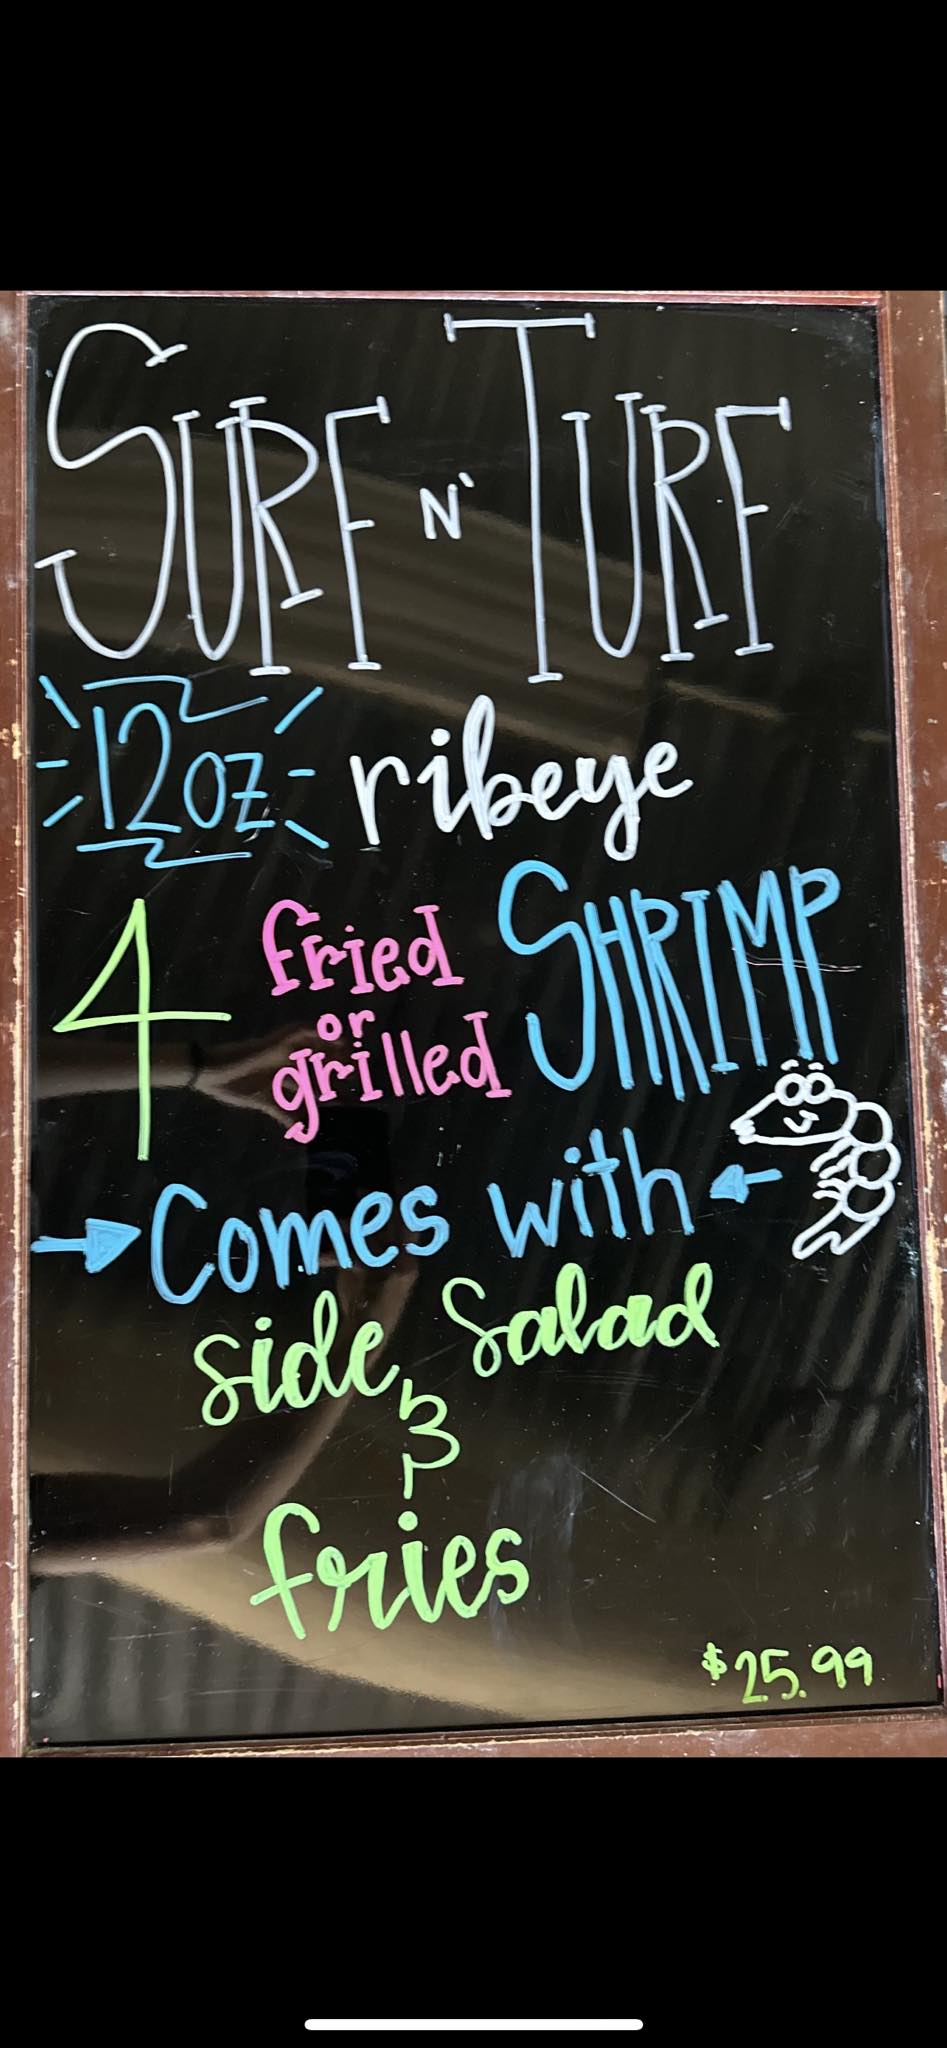 SURF N' TURF
12oz ribeye
4 fried or grilled SHRIMP
Comes with
side Salad
&
fries
$25.99